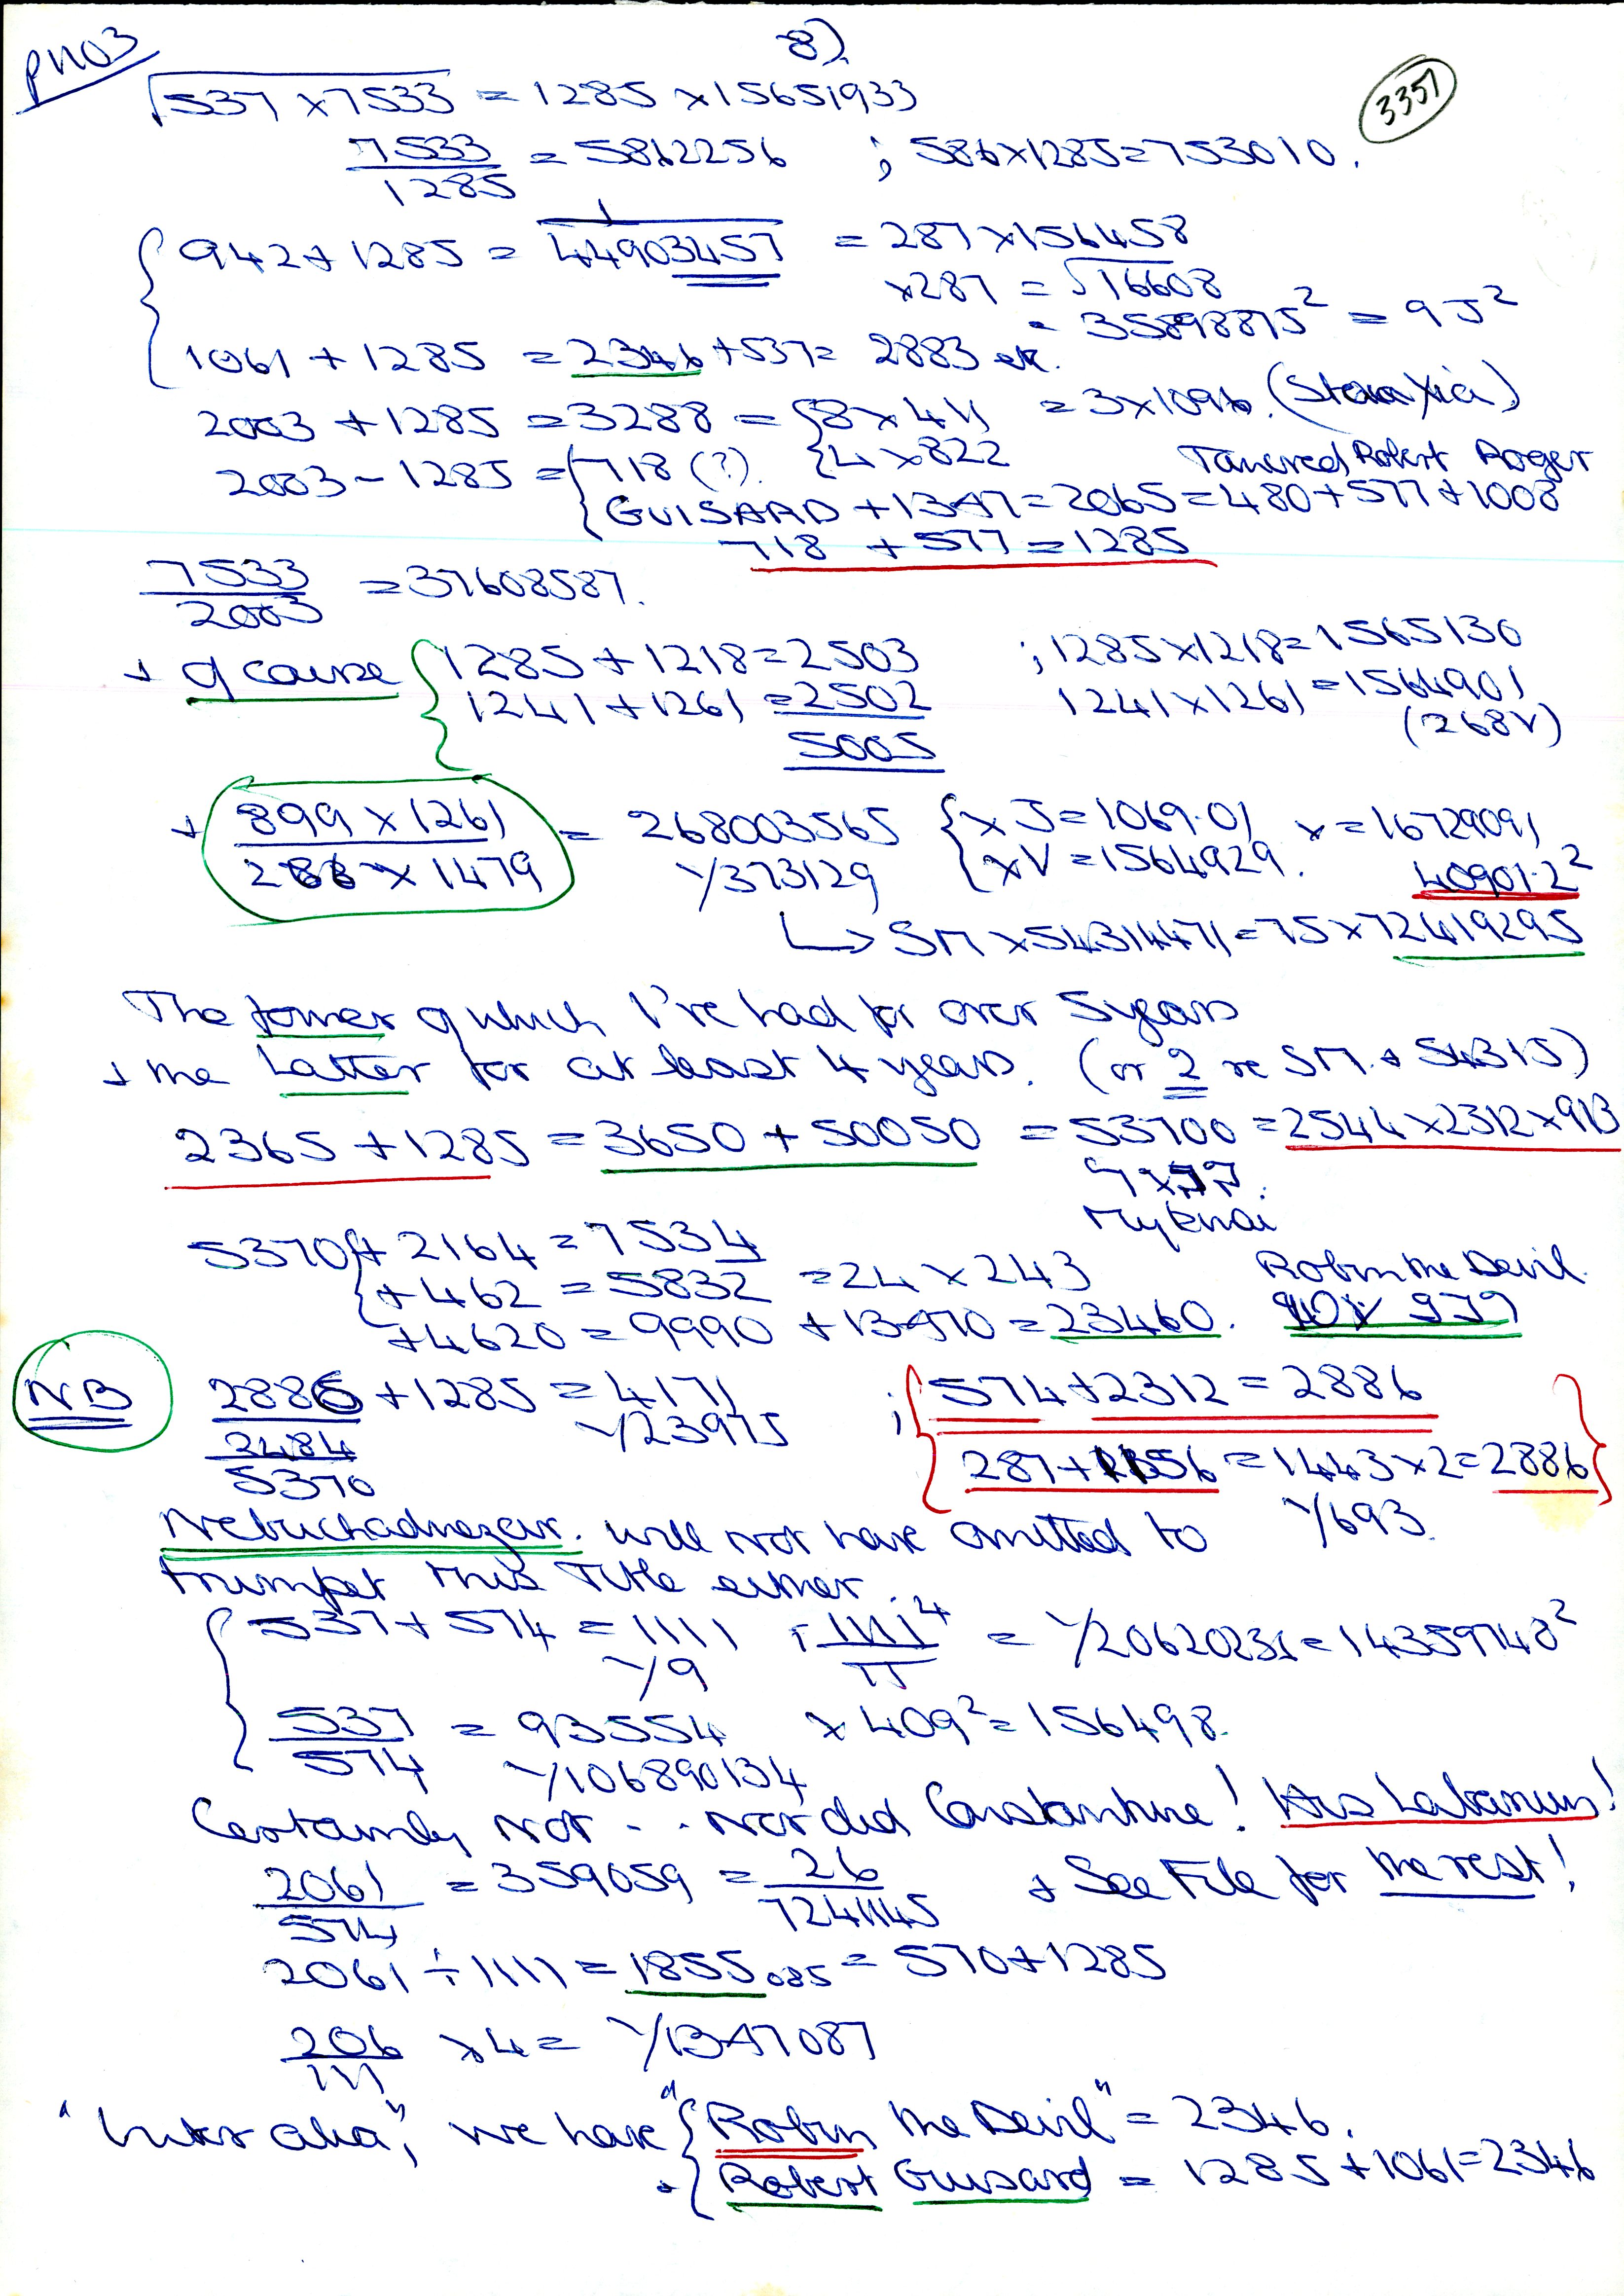 PN03
8)
3357
√537 x 7533 = 1285 x 15651933
7533/1285 = 5862256 ; 586x1285=753010.
942+1285 = 1/44903457 = 287x156458
x287 = √16608
= 35898875² = 9J²
1061 + 1285 = 2346 + 537 = 2883 etc.
2003 + 1285 = 3288 = {8 x 411 = 3x1096. 
{4 x 822
2003 - 1285 = {718 (?). Tancred Robert Roger
{GUISARD + 1347 = 2065 = 480+577+1008
718 + 577 = 1285
7533/2003 = 37608587.
+ of course {1285 + 1218 = 2503 ; 1285x1218=1565130
1241 + 1261 = 2502 1241x1261 = 1564901
5005 (268V)
+ 899 x 1261 / 286 x 1479 = 268003565 {x J = 1069.01 x = 16729091
Y/373129 {x V = 1564929. 40901.2²
↳ SM x 54314471 = 75 x 72419295
The former of which I've had for over 5 years
+ the Latter for at least 4 years. (or 2 re SM. + 54315)
2365 + 1285 = 3650 + 50050 = 53700 = 2544x2312x913
Mykenai
5370 {+ 2164 = 7534
{+ 462 = 5832 = 24 x 243 Robin the Devil.
+ 4620 = 9990 + 13470 = 23460.
NB 2886 + 1285 = 4171 ; {574+2312 = 2886}
2484 Y/23975
5370 {287+1156 = 1443x2 = 2886}
Nebuchadnezzar. will not have omitted to Y/693.
trumpet this Title either.
{537 + 574 = 1111 + 1111⁴/π = Y/20620231 = 14359748²
Y/9
537/574 = 93554 x 409² = 156498.
Y/106890134
Certainly not .. nor did Constantine! His Labarum!
2061/574 = 359059 = 26/7241145 + See File for the rest!
2061 ÷ 1111 = 1855.085 = 570 + 1285
206/111 x 4 = Y/1347087
"Inter alia", we have {"Robin the Devil" = 2346.
+ {Robert Guisard = 1285 + 1061 = 2346